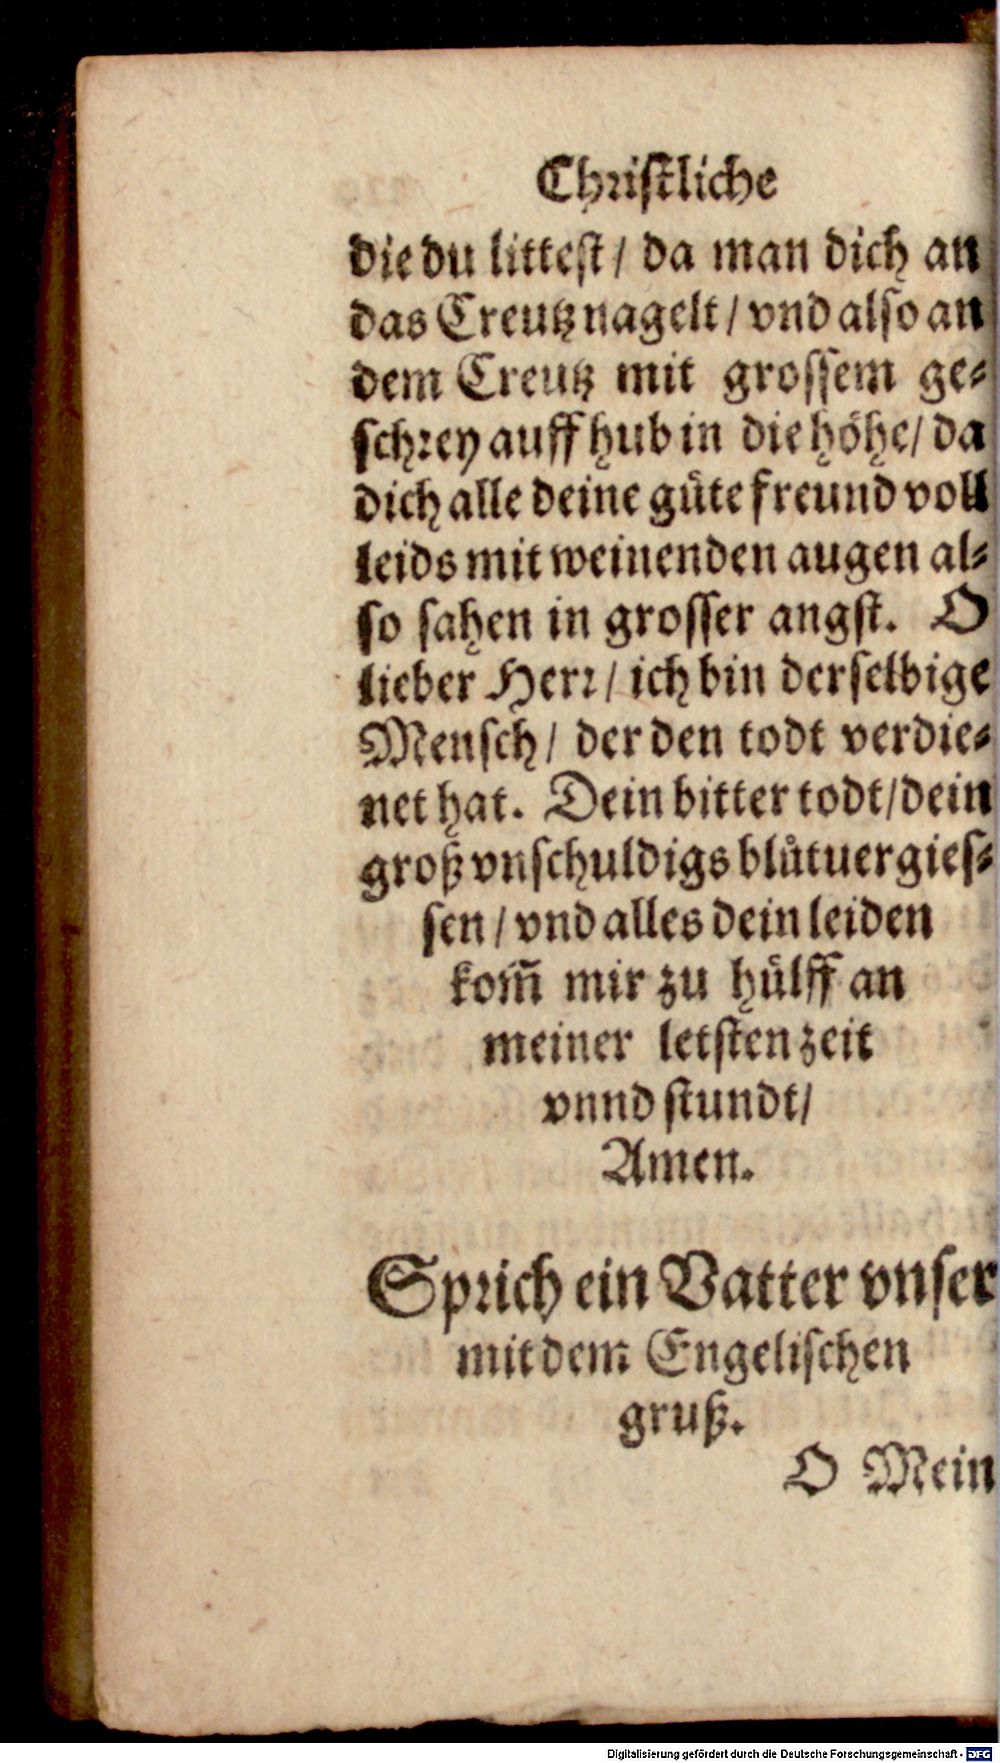 Christliche
die du littest / da man dich an
das Creutz nagelt / vnd also an
dem Creutz mit grossem ge⸗
schrey auff hub in die höhe / da
dich alle deine gůte freund voll
leids mit weinenden augen al⸗
so sahen in grosser angst. O
lieber Herr / ich bin derselbige
Mensch / der den todt verdie⸗
net hat. Dein bitter todt / dein
groß vnschuldigs blůtuergies⸗
sen / vnd alles dein leiden
kom̃ mir zu hülff an
meiner letsten zeit
vnnd stundt /
Amen.
Sprich ein Vatter vnser
mit dem Engelischen
gruß.
O Mein
Digitalisierung gefördert durch die Deutsche Forschungsgemeinschaft - DFG